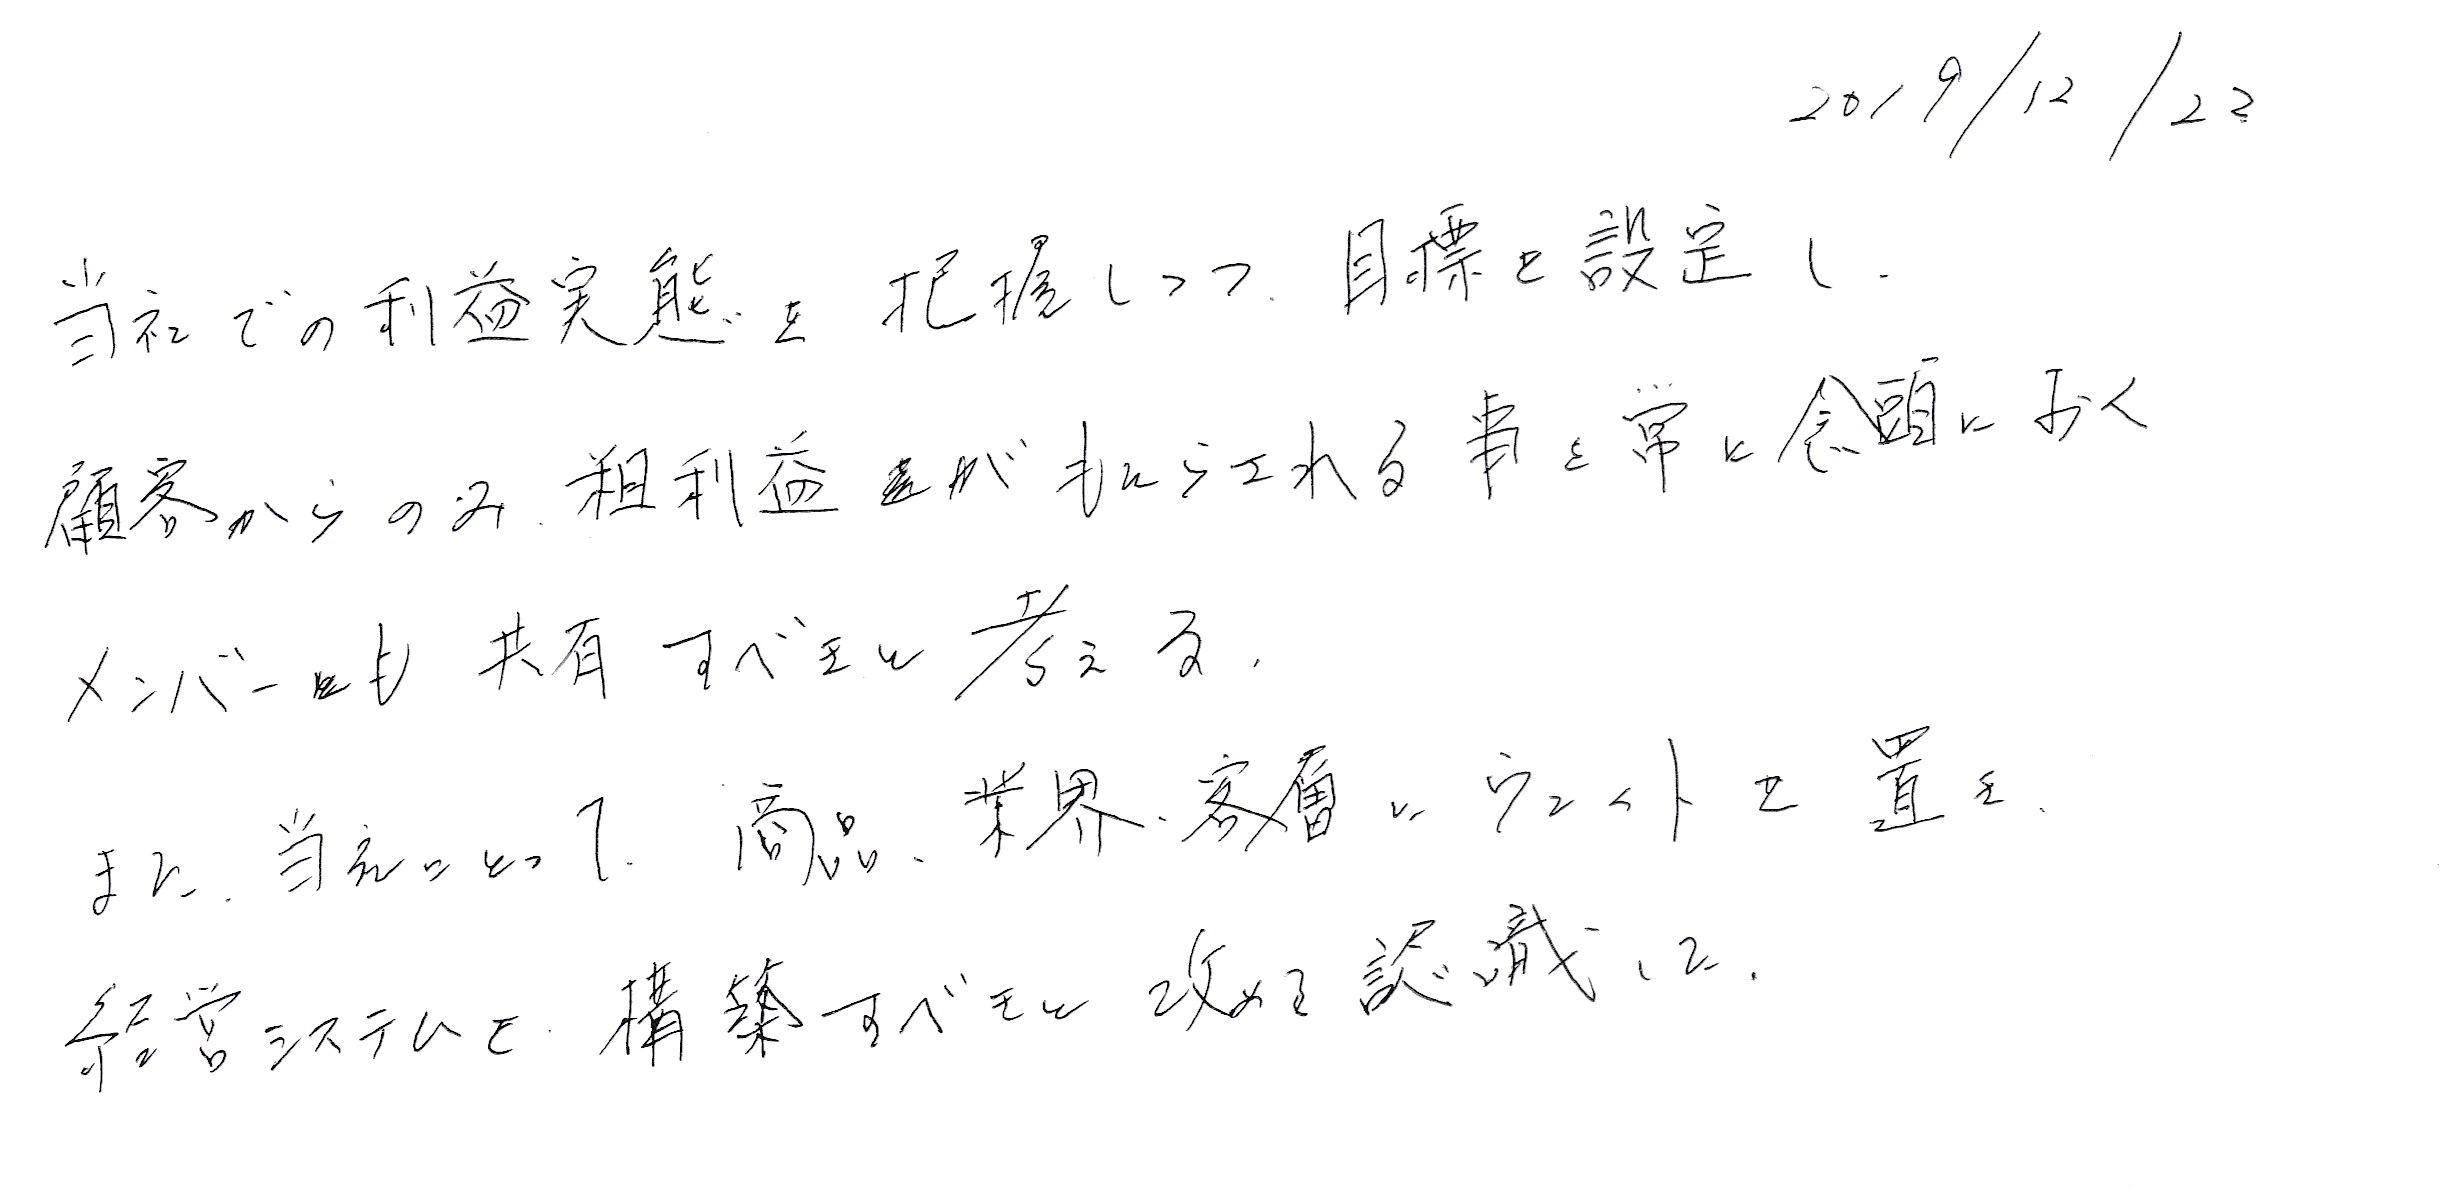 2019/12/22
当社での利益実態を把握しつつ、目標を設定し、
顧客からのみ、粗利益がもたらされる事を常に念頭におく
メンバーにも共有すべきと考える。
また、当社にとって、商品、業界、客層にウェイトを置き、
経営システムを構築すべきと改める認識した。